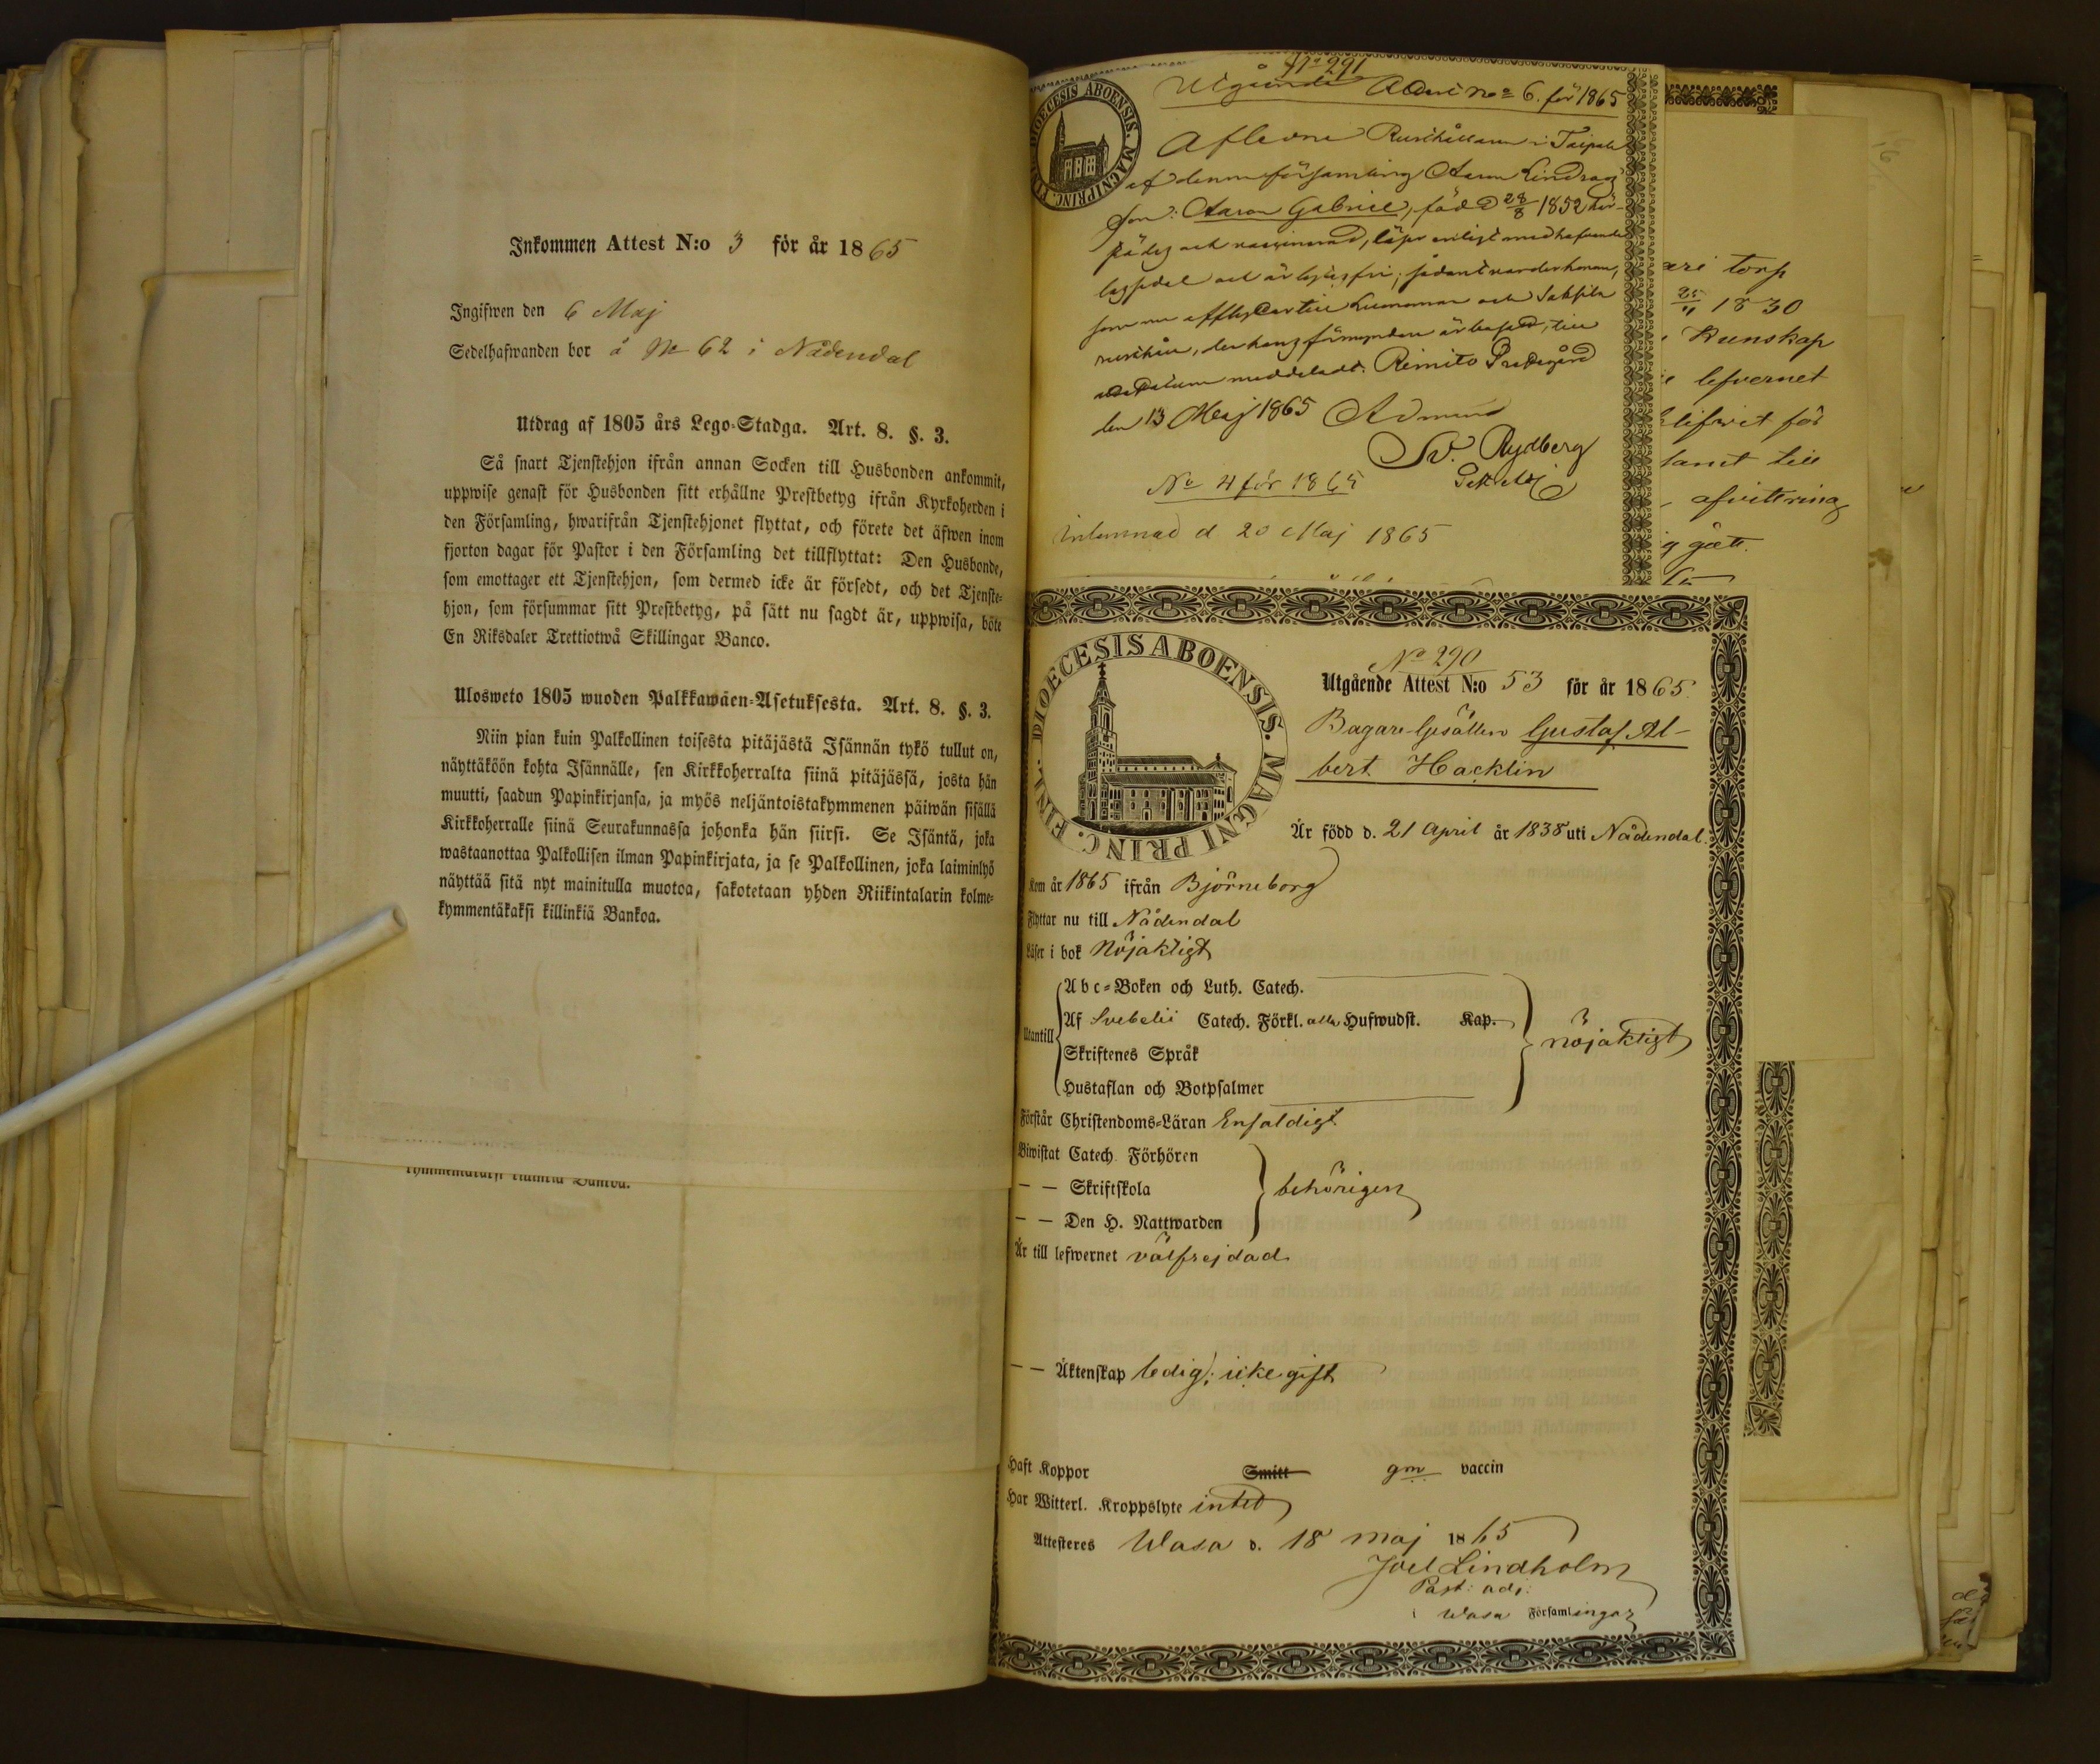 Inkommen Attest N:o 3 för år 1865
Ingifwen den 6 Maj
Sedelhafwanden bor å No 62 i Nådendal
Utdrag af 1805 års Lego-Stadga. Art. 8. §. 3.
Så snart Tjenstehjon ifrån annan Socken till Husbonden ankommit,
uppwise genast för Husbonden sitt erhållne Prestbetyg ifrån Kyrkoherden i
den Församling, hwarifrån Tjenstehjonet flyttat, och förete det äfwen inom
fjorton dagar för Pastor i den Församling det tillflyttat: Den Husbonde,
som emottager ett Tjenstehjon, som dermed icke är försedt, och det Tjenste-
hjon, som försummar sitt Prestbetyg, på sätt nu sagdt är, uppwisa, böte
En Riksdaler Trettiotwå Skillingar Banco.
Ulosweto 1805 wuoden Palkkawäen-Asetuksesta. Art. 8. §. 3.
Niin pian kuin Palkollinen toisesta pitäjästä Isännän tykö tullut on,
näyttäköön kohta Isännälle, sen Kirkkoherralta siinä pitäjässä, josta hän
muutti, saadun Papinkirjansa, ja myös neljäntoistakymmenen päiwän sisällä
Kirkkoherralle siinä Seurakunnassa johonka hän siirsi. Se Isäntä, joka
wastaanottaa Palkollisen ilman Papinkirjata, ja se Palkollinen, joka laiminlyö
näyttää sitä nyt mainitulla muotoa, sakotetaan yhden Riikintalarin kolme-
kymmentäkaksi killinkiä Bankoa.
No 291
Utgående Attest No 6. för 1865
DIOECESIS ABOENSIS. MAGNI PRINC.
Afledne Rusthållaren i Taipale
af denna församling Aaron Lindrags
son: Aaron Gabriel, född 28/8 1852 här-
städes och vaccinerad, läser enligt medhafvande
läs
som nu afflyttar till Lemo
rusthåll, der hans förmyndare är bosatt, till
meddeladt. Rimito Prestgård
den 13 Maj 1865
Sv. Rydberg
No 4 för 1865
inlemnad d 20 Maj 1865
torp
25/11 1830
Kunskap
lefvernet
för
samt till
afvittring
gått.
No 290
DIOECESIS ABOENSIS. MAGNI PRINC. FINL.
Utgående Attest N:o 53 för år 1865.
Bagare Gesällen Gustaf Al-
bert Hacklin
Är född d. 21 April år 1838 uti Nådendal.
Kom år 1865 ifrån Björneborg
Flyttar nu till Nådendal
Läser i bok Nöjaktigt
Abc-Boken och Luth. Catech.
Utantill Af Svebelii Catech. Förkl. alla Hufwudst. Kap. nöjaktigt
Skriftenes Språk
Hustaflan och Botpsalmer
Förstår Christendoms-Läran Enfaldigt
Biwistat Catech. Förhören
— — Skriftskola behörigen
— — Den H. Nattwarden
Är till lefwernet välfrejdad
— — Äktenskap ledig; icke gift
Haft Koppor Smitt gm vaccin
Har Witterl. Kroppslyte intet
Attesteres Wasa d. 18 maj 1865
Joel Lindholm
Past: adj:
i Wasa Församlingar